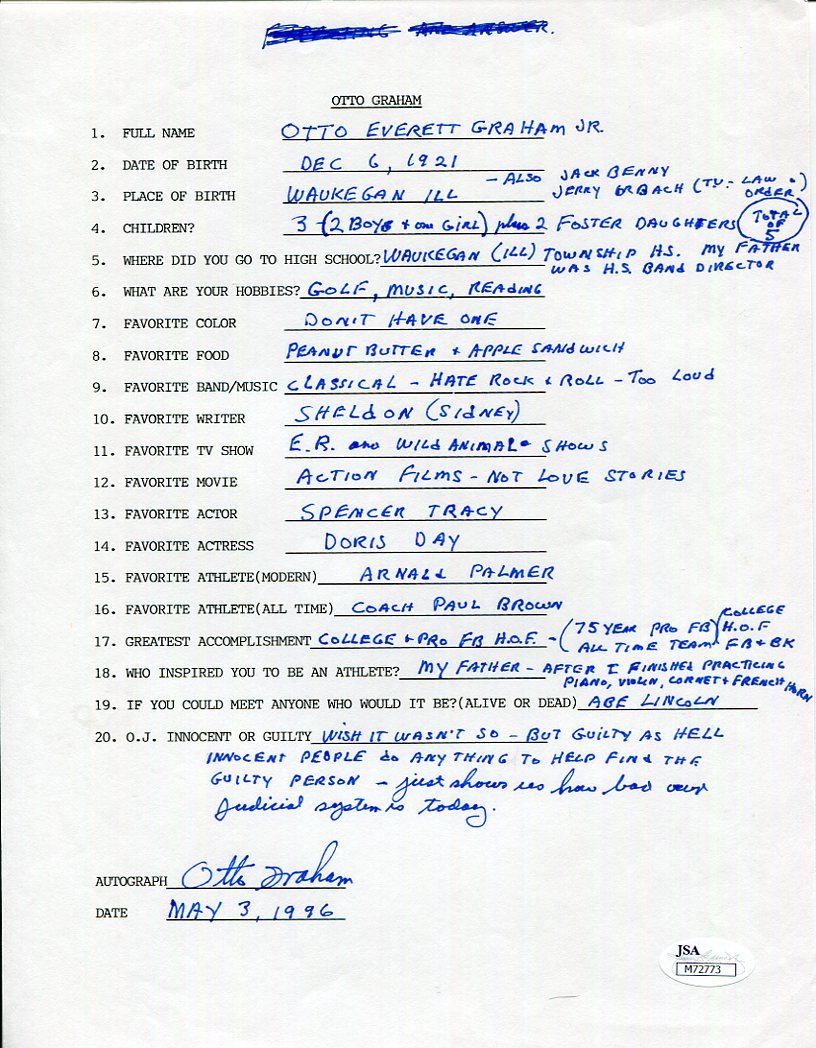 AND ANSWER.
OTTO GRAHAM
1. FULL NAME OTTO EVERETT GRAHAM JR.
2. DATE OF BIRTH DEC 6, 1921
3. PLACE OF BIRTH WAUKEGAN ILL - ALSO JACK BENNY
JERRY ORBACH (TV - LAW & ORDER)
4. CHILDREN? 3 - (2 BOYS + one GIRL) plus 2 FOSTER DAUGHTERS TOTAL OF 5
5. WHERE DID YOU GO TO HIGH SCHOOL? WAUKEGAN (ILL) TOWNSHIP H.S. MY FATHER
WAS H.S. BAND DIRECTOR
6. WHAT ARE YOUR HOBBIES? GOLF, MUSIC, READING
7. FAVORITE COLOR DON'T HAVE ONE
8. FAVORITE FOOD PEANUT BUTTER + APPLE SANDWICH
9. FAVORITE BAND/MUSIC CLASSICAL - HATE ROCK + ROLL - TOO LOUD
10. FAVORITE WRITER SHELDON (SIDNEY)
11. FAVORITE TV SHOW E.R. and WILD ANIMAL SHOWS
12. FAVORITE MOVIE ACTION FILMS - NOT LOVE STORIES
13. FAVORITE ACTOR SPENCER TRACY
14. FAVORITE ACTRESS DORIS DAY
15. FAVORITE ATHLETE(MODERN) ARNALD PALMER
16. FAVORITE ATHLETE(ALL TIME) COACH PAUL BROWN
17. GREATEST ACCOMPLISHMENT COLLEGE + PRO FB H.O.F. - (75 YEAR PRO FB ALL TIME TEAM) COLLEGE H.O.F FB + BK
18. WHO INSPIRED YOU TO BE AN ATHLETE? MY FATHER - AFTER I FINISHED PRACTICING
PIANO, VIOLIN, CORNET + FRENCH HORN
19. IF YOU COULD MEET ANYONE WHO WOULD IT BE?(ALIVE OR DEAD) ABE LINCOLN
20. O.J. INNOCENT OR GUILTY WISH IT WASN'T SO - BUT GUILTY AS HELL
INNOCENT PEOPLE do ANYTHING TO HELP FIND THE
GUILTY PERSON - just shows us how bad our
Judicial system is today.
AUTOGRAPH Otto Graham
DATE MAY 3, 1996
JSA
M72773